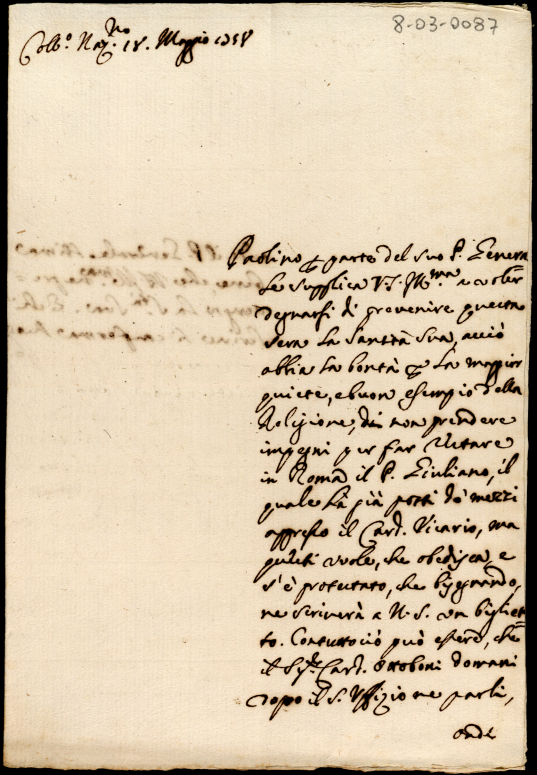 8-03-0087
Coll.º Naz.no 18. Maggio 1758
Paolino p parte del suo P. Genera
Le supplica V.S. Ill.ma a voler
degnarsi di prevenire questa
sera La Santità Sua, acciò
abbia La bontà p La maggior
quiete, e buon esempio della
Religione, di non prendere
impegni per far restare
in Roma il P. Giuliano, il
quale hà già posti dè mezzi
appresso il Card. Vicario, ma
questi vuole, che obedisca, e
s'è protestato, che bisognando,
ne scriverà a N.S. un bigliet
to. Contuttociò può essere, che
il Sig.r Card. Ottoboni domani
dopo il S. Uffizio ne parli,
onde